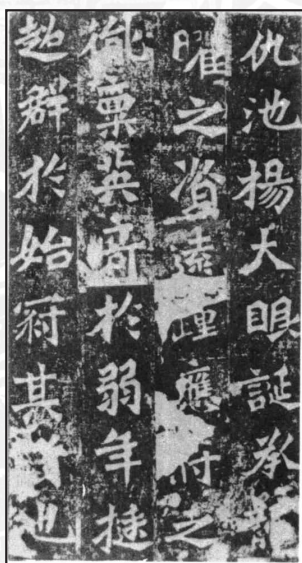 仇池揚大眼誕承
曜之資遠踵應符之
胤稟英奇於弱年挺
超群於始冠其也